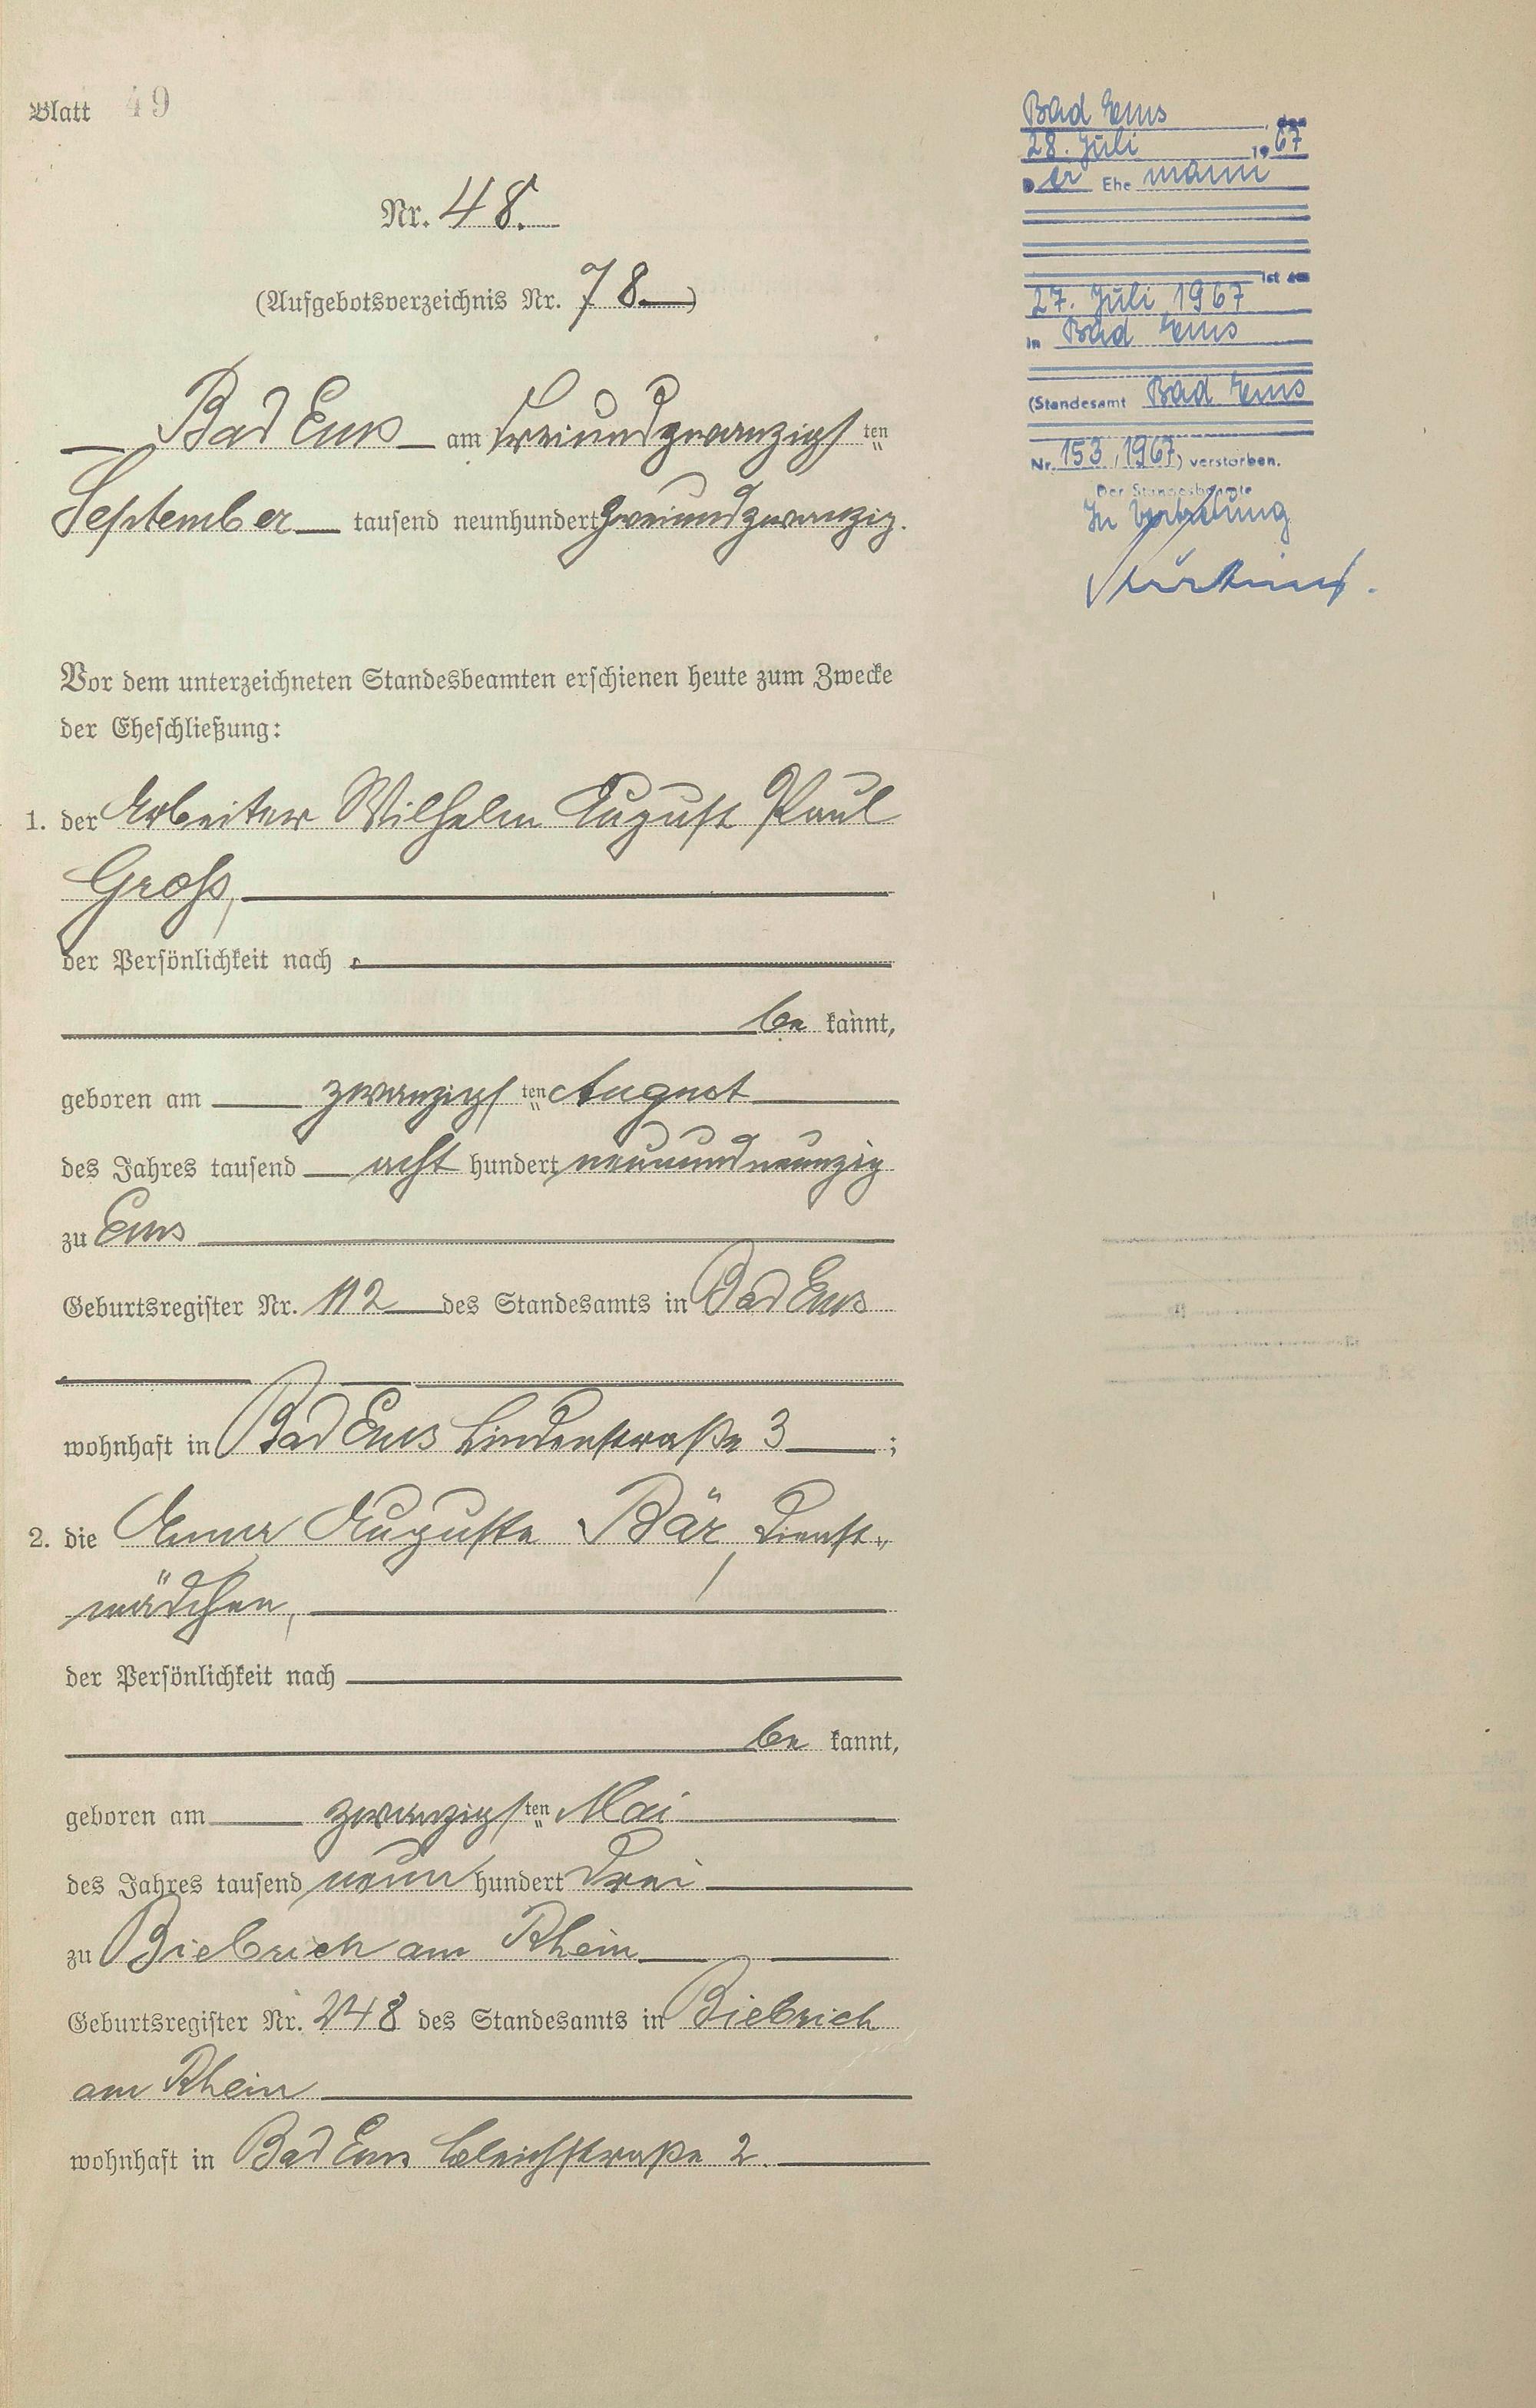 Blatt 49
Nr. 48.
(Aufgebotsverzeichnis Nr. 78)
Bad Ems am dreiundzwanzigsten
September tausend neunhundert zweiundzwanzig.
Vor dem unterzeichneten Standesbeamten erschienen heute zum Zwecke
der Eheschließung:
1. der Arbeiter Wilhelm August Paul
Groß,
der Persönlichkeit nach
be kannt,
geboren am zwanzigsten August
des Jahres tausend acht hundert neunundneunzig
zu Ems
Geburtsregister Nr. 112 des Standesamts in Bad Ems
wohnhaft in Bad Ems Lindenstraße 3;
2. die Anna Auguste Bär, Dienst-
mädchen,
der Persönlichkeit nach
be kannt,
geboren am zwanzigsten Mai
des Jahres tausend neun hundert drei
zu Biebrich am Rhein
Geburtsregister Nr. 248 des Standesamts in Biebrich
am Rhein
wohnhaft in Bad Ems Bleichstraße 2.
Bad Ems, den
28. Juli 1967
Der Ehemann
ist am
27. Juli 1967
in Bad Ems
(Standesamt Bad Ems
Nr. 153/1967) verstorben.
Der Standesbeamte
In Vertretung